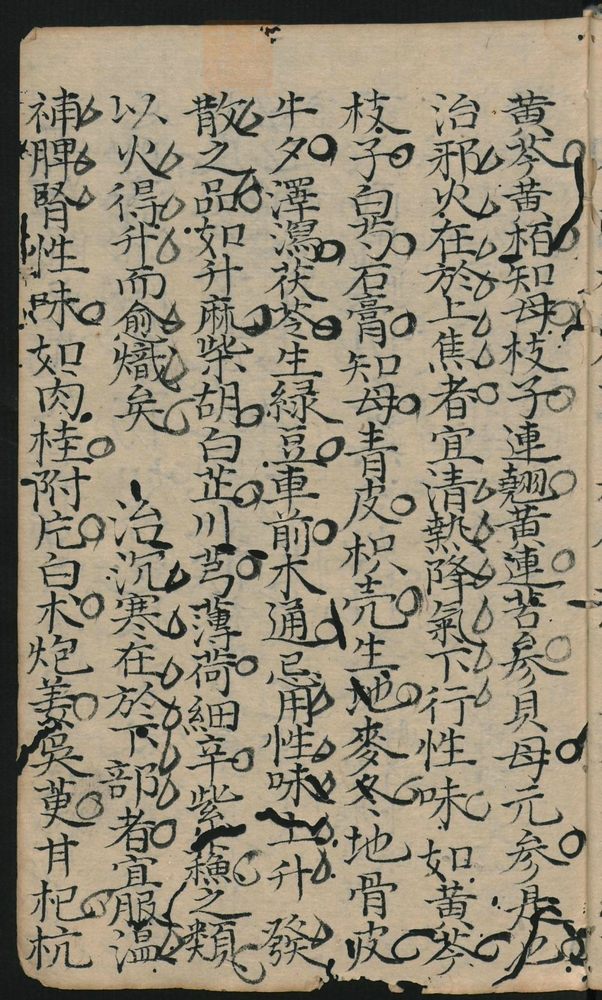 黄芩黄栢知母枝子連翹黄連苦参貝母元参是也
治邪火在於上焦者宜清熱降氣下行性味如黄芩
枝子白芍石膏知母青皮枳壳生地麥冬地骨皮
牛夕澤瀉茯苓生緑豆車前木通忌用性味上升發
散之品如升麻柴胡白芷川芎薄荷細辛紫蘇之類
以火得升而愈熾矣 治沉寒在於下部者宜服温
補脾腎性味如肉桂附片白朮炮姜吳萸甘杞杭